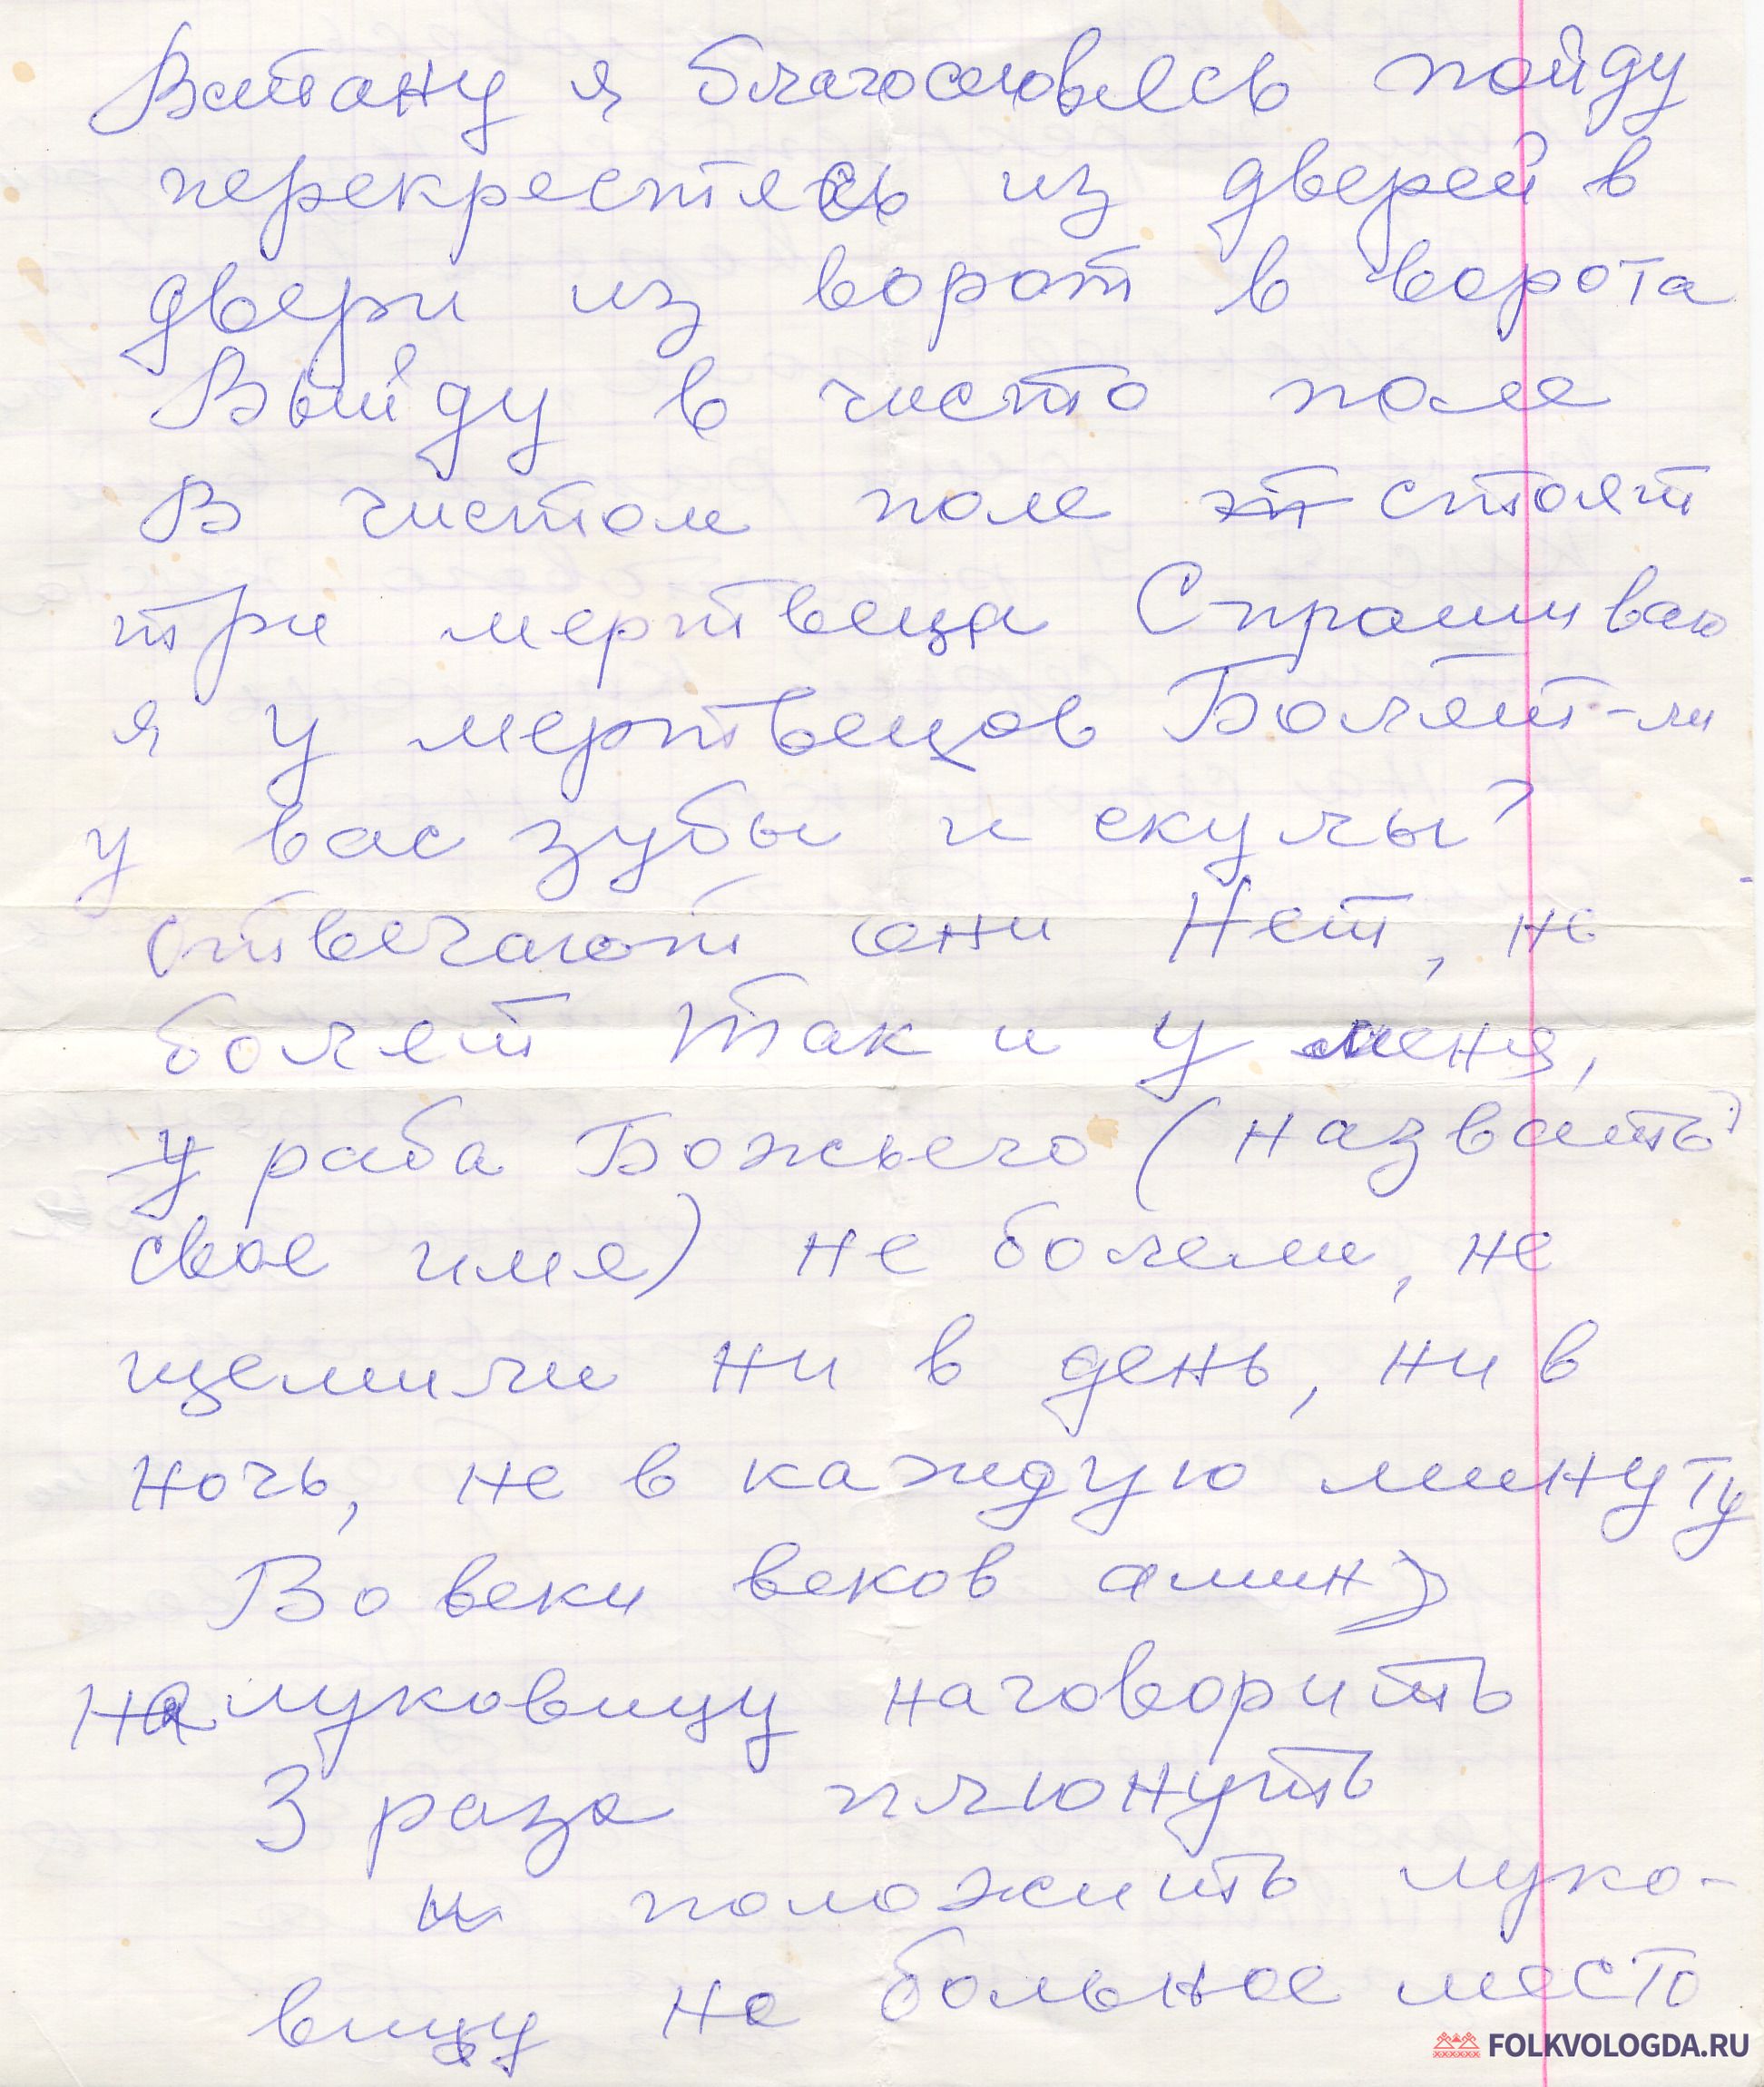 Встану я благословясь пойду
перекрестясь из дверей в
двери из ворот в ворота
Выйду в чисто поле
В чистом поле эт стоят
три мертвеца Спрашиваю
я у мертвецов Болят-ли
у вас зубы и скулы?
отвечают они Нет, не
болят Так и у меня,
у раба Божьего (назвать
свое имя) не болели, не
щемили ни в день, ни в
ночь, не в каждую минуту
Во веки веков аминь
на луковицу наговорить
3 раза плюнуть
и положить луко-
вицу на больное место
FOLKVOLOGDA.RU